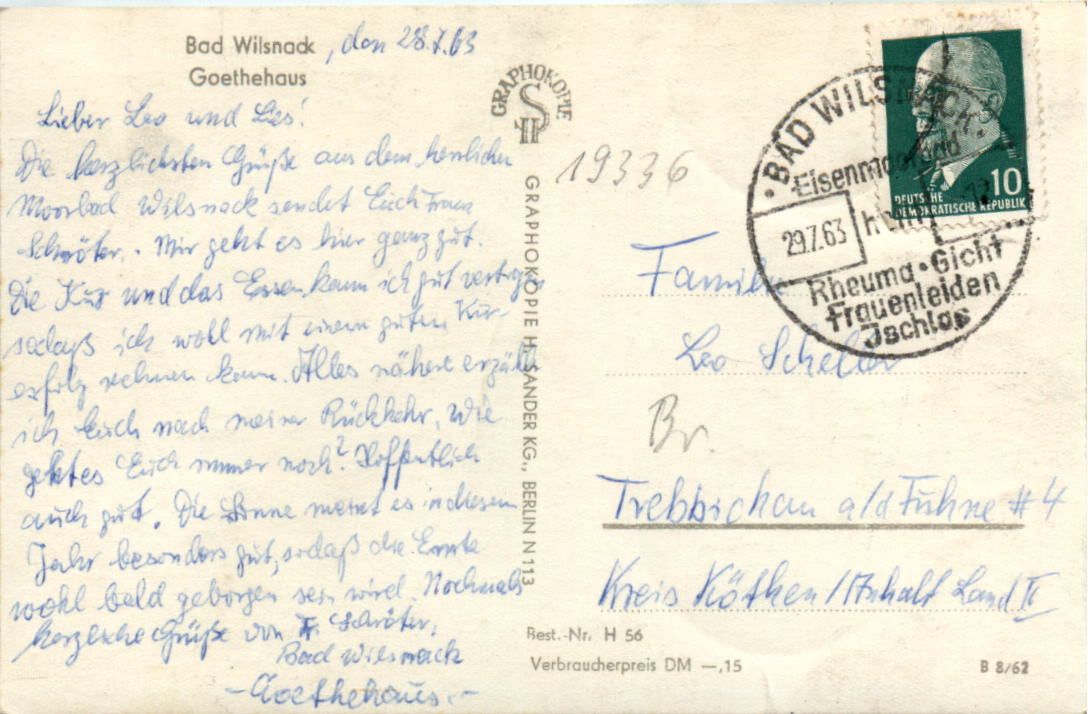 Bad Wilsnack, den 28.7.63
Goethehaus
Lieber Leo und Lies!
Die herzlichsten Grüße aus dem herrlichen
Moorbad Wilsnack sendet Euch Frau
Schröter. Mir geht es hier ganz gut.
Die Kur und das Essen kann ich gut vertragen
sodaß ich wohl mit einem guten Kur-
erfolg rehnen kann. Alles nähere erzähle
ich Euch nach meiner Rückkehr. Wie
geht es Euch immer noch? Hoffentlich
auch gut. Die Sonne meint es in diesem
Jahr besonders gut, sodaß die Ernte
wohl bald geborgen sein wird. Nochmals
herzliche Grüße von F. Schröter,
Bad Wilsnack
-Goethehaus.-
GRAPHOKOPIE
GRAPHOKOPIE H. SANDER KG., BERLIN N 113
19336
BAD WILSNACK
Eisenmoorbad
29.7.63
Rheuma · Gicht
Frauenleiden
Ischias
10
DEUTSCHE
DEMOKRATISCHE REPUBLIK
Familie
Leo Scheller
Br.
Trebbichau a/d Fuhne #4
Kreis Köthen/Anhalt Land II
Best.-Nr. H 56
Verbraucherpreis DM —,15
B 8/62